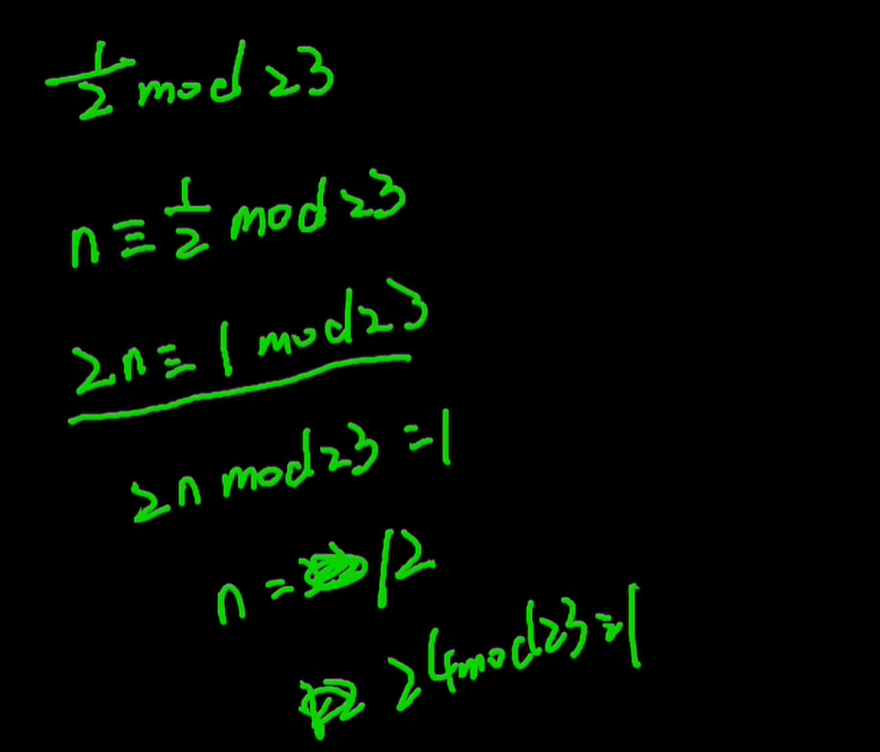 1/2 mod 23
n ≡ 1/2 mod 23
2n ≡ 1 mod 23
2n mod 23 = 1
n = 12
24 mod 23 = 1